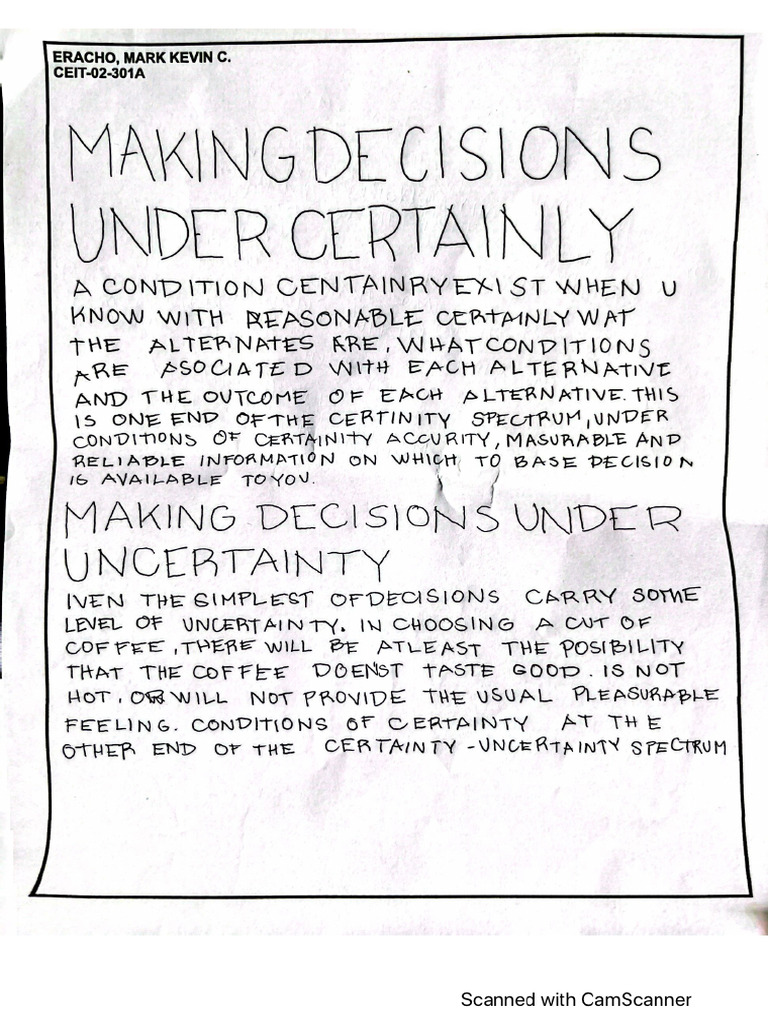 ERACHO, MARK KEVIN C.
CEIT-02-301A
MAKING DECISIONS
UNDER CERTAINLY
A CONDITION CENTAINRY EXIST WHEN U
KNOW WITH REASONABLE CERTAINLY WAT
THE ALTERNATES ARE, WHAT CONDITIONS
ARE ASOCIATED WITH EACH ALTERNATIVE
AND THE OUTCOME OF EACH ALTERNATIVE. THIS
IS ONE END OF THE CERTINITY SPECTRUM, UNDER
CONDITIONS OF CERTAINITY ACCURITY, MASURABLE AND
RELIABLE INFORMATION ON WHICH TO BASE DECISION
IS AVAILABLE TO YOU.
MAKING DECISIONS UNDER
UNCERTAINTY
IVEN THE SIMPLEST OF DECISIONS CARRY SOME
LEVEL OF UNCERTAINTY. IN CHOOSING A CUT OF
COFFEE, THERE WILL BE ATLEAST THE POSIBILITY
THAT THE COFFEE DOENST TASTE GOOD. IS NOT
HOT, OR WILL NOT PROVIDE THE USUAL PLEASURABLE
FEELING. CONDITIONS OF CERTAINTY AT THE
OTHER END OF THE CERTAINTY - UNCERTAINTY SPECTRUM
Scanned with CamScanner